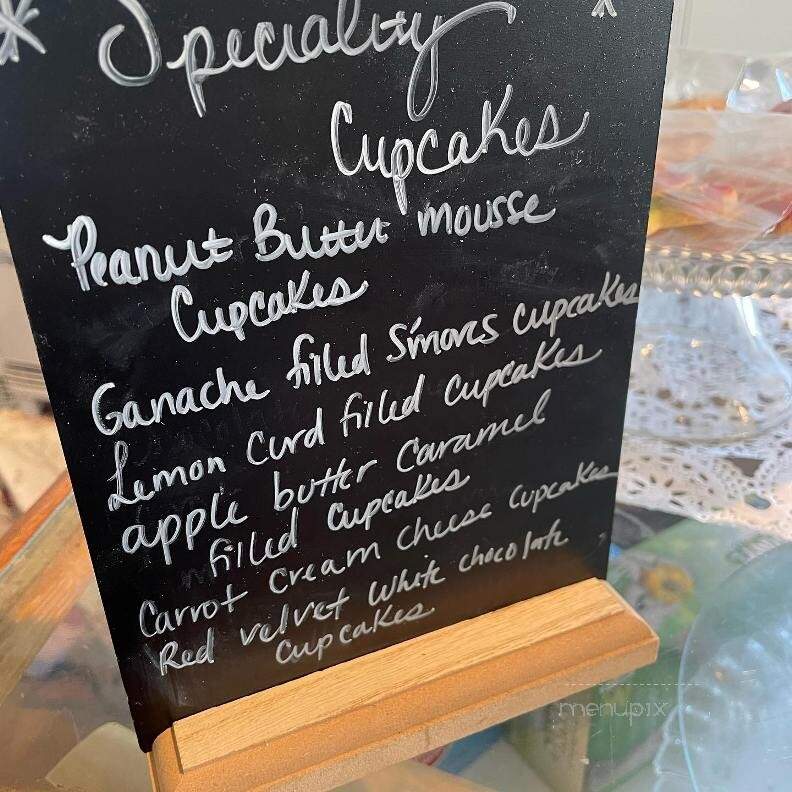 * Speciality *
Cupcakes
Peanut Butter mousse
Cupcakes
Ganache filled S'mores cupcakes
Lemon Curd filled cupcakes
apple butter Caramel
filled cupcakes
Carrot Cream Cheese cupcakes
Red velvet White chocolate
cupcakes
menupix